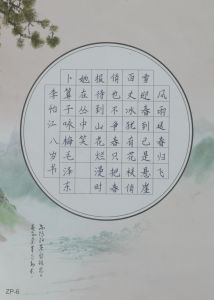 风雨送春归飞
雪迎春到已是悬崖
百丈冰犹有花枝俏
俏也不争春只把春
报待到山花烂漫时
她在丛中笑
卜算子咏梅毛泽东
李怡江八岁书
ZP-6